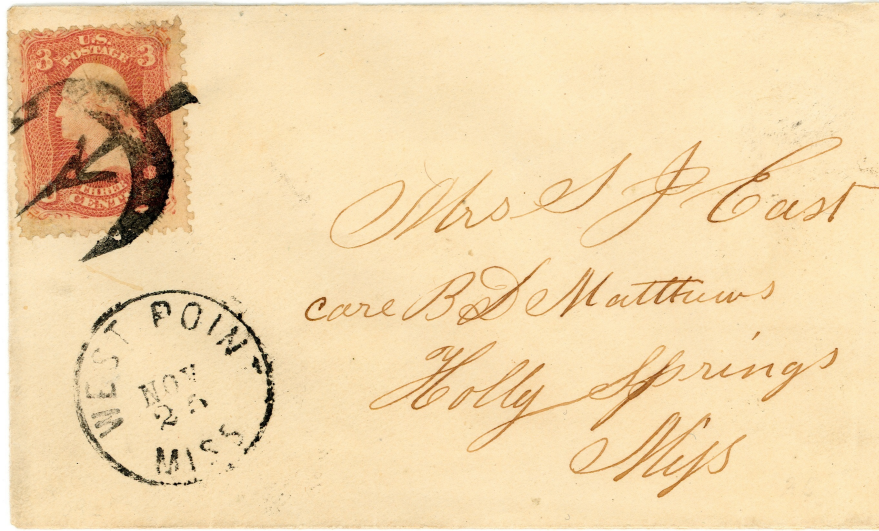 3 U.S. 3
POSTAGE
THREE
CENT
WEST POINT
NOV
MISS
Mrs S J East
care B D Matthews
Holly Springs
Miss